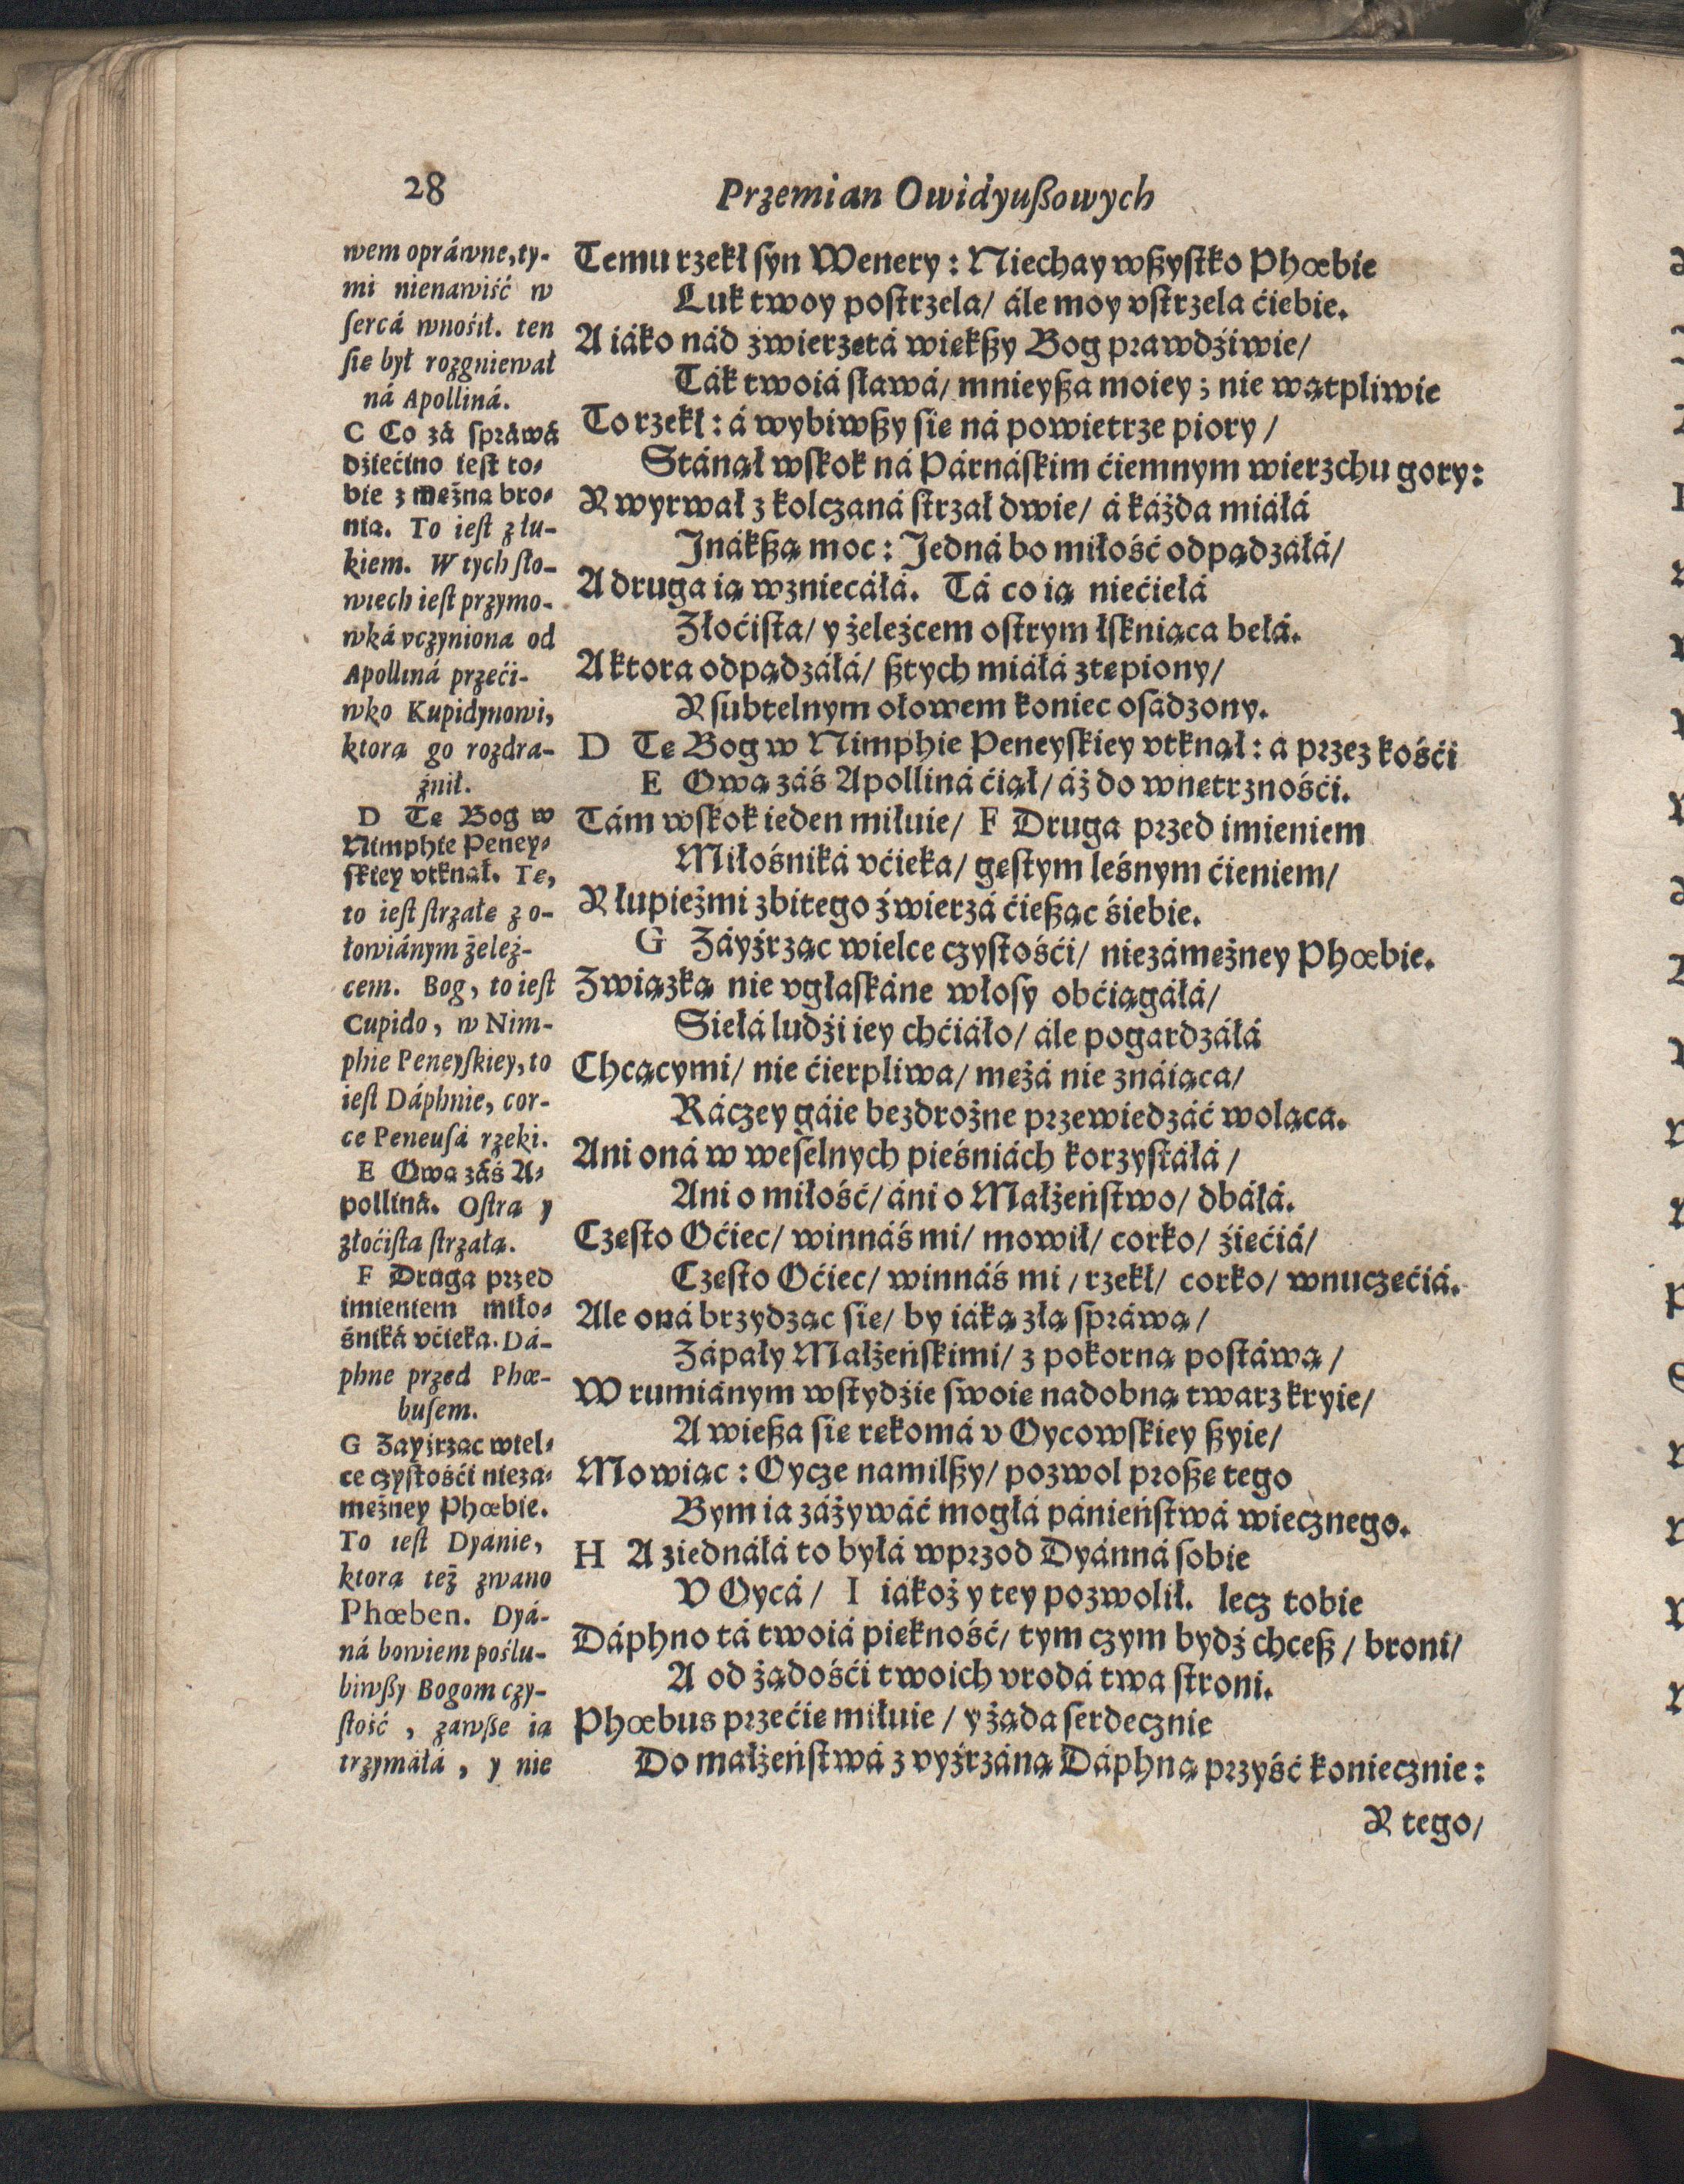 28
Przemian Owidyußowych
wem opráwne, ty-
mi nienawiść w
sercá wnośił. ten
sie był rozgniewał
ná Apolliná.
C Co zá spráwá
dźiećino iest to-
bie z mężna bro-
nia. To iest z łu-
kiem. W tych sło-
wiech iest przymo-
wká vczyniona od
Apolliná przeći-
wko Kupidynowi,
ktora go rozdra-
żnił.
D Te Bog w
Nimphie Peney-
skiey vtknął. Te,
to iest strzałe z o-
łowiánym żeleź-
cem. Bog, to iest
Cupido, w Nim-
phie Peneyskiey, to
iest Dáphnie, cor-
ce Peneusá rzeki.
E Owa záś A-
polliná. Ostra y
złoćista strzała.
F Druga przed
imieniem miło-
śniká vćieka. Dá-
phne przed Phœ-
busem.
G Zayźrzac wiel-
ce czystośći nieza-
mężney Phœbie.
To iest Dyánie,
ktora też zwano
Phœben. Dyá-
ná bowiem poślu-
biwßy Bogom czy-
stość, zawße ia
trzymáłá, y nie
Temu rzekł syn Wenery: Niechay wßystko Phœbie
Luk twoy postrzela/ ále moy vstrzela ćiebie.
A iáko nád zwierzętá większy Bog prawdźiwie/
Ták twoiá sławá/ mnieyßa moiey; nie wątpliwie
To rzekł: á wybiwßy sie ná powietrze piory/
Stánął wskok ná Párnáskim ćiemnym wierzchu gory:
Y wyrwał z kolczaná strzał dwie/ á káżda miáłá
Inákßą moc: Jedná bo miłość odpądzáłá/
A druga ią wzniecáłá. Tá co ią niećiełá
Złoćista/ y żeleźcem ostrym łskniąca belá.
A ktora odpądzáłá/ ßtych miáłá ztępiony/
Y subtelnym ołowem koniec osádzony.
D Tę Bog w Nimphie Peneyskiey vtknął: á przez kośći
E Ową záś Apolliná ćiął/ áż do wnętrznośći.
Tám wskok ieden miłuie/ F Druga przed imieniem
Miłośniká vćieka/ gęstym leśnym ćieniem/
Y łupieżmi zbitego źwierzá ćießąc śiebie.
G Záyźrząc wielce czystośći/ niezámężney Phœbie.
Związką nie vgłaskáne włosy obćiągáłá/
Siełá ludźi iey chćiáło/ ále pogardzáłá
Chcącymi/ nie ćierpliwa/ mężá nie znáiąca/
Ráczey gáie bezdrożne przewiedzáć woląca.
Ani oná w weselnych pieśniách korzystáłá/
Ani o miłość/ áni o Małżeństwo/ dbáłá.
Często Oćiec/ winnáś mi/ mowił/ corko/ źiećiá/
Często Oćiec/ winnáś mi/ rzekł/ corko/ wnuczęćiá.
Ale oná brzydząc sie/ by iáką złą spráwą/
Zápały Małżeńskimi/ z pokorną postáwą/
W rumiánym wstydźie swoie nadobną twarz kryie/
A wießa sie rękomá v Oycowskiey ßyie/
Mowiąc: Oycze namilßy/ pozwol proßę tego
Bym ia záżywáć mogłá pánieństwá wiecznego.
H A ziednáłá to byłá wprzod Dyánná sobie
V Oycá/ I iákoż y tey pozwolił. lecz tobie
Dáphno tá twoiá piękność/ tym czym bydź chceß/ broni/
A od żądośći twoich vrodá twa stroni.
Phœbus przećię miłuie/ y żąda serdecznie
Do małżeństwá z vyźrzáną Dáphną przyść koniecznie:
Y tego/